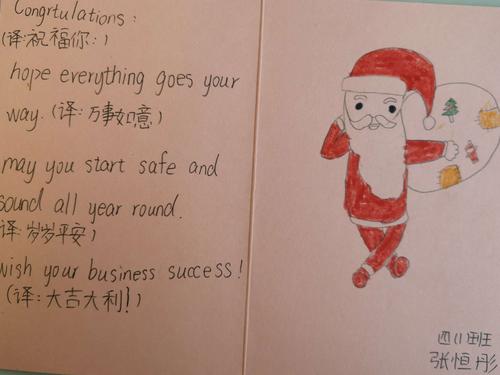 Congrtulations:
(译:祝福你:)
hope everything goes your
way. (译:万事如意)
may you start safe and
sound all year round.
译:岁岁平安)
wish your business success!
(译:大吉大利!)
四11班
张恒彤